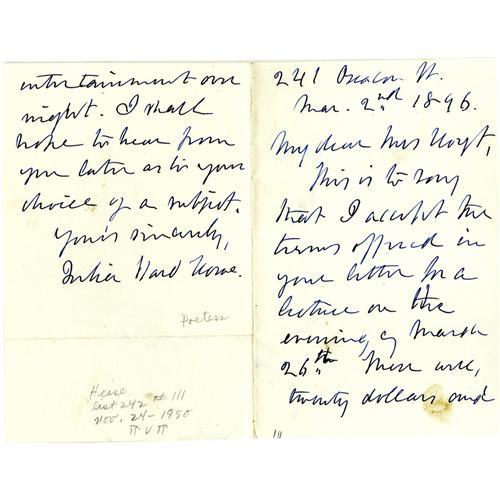 241 Beacon St.
Mar. 2nd 1896.
My dear Mrs Hoyt,
This is to say
that I accept the
terms offered in
your letter for a
lecture on the
evening of March
26th These are,
twenty dollars and
111
entertainment over
night. I shall
hope to hear from
you later as to your
choice of a subject.
Yours sincerely,
Julia Ward Howe.
Poetess
Heise
list 242 # 111
Nov. 24-1950